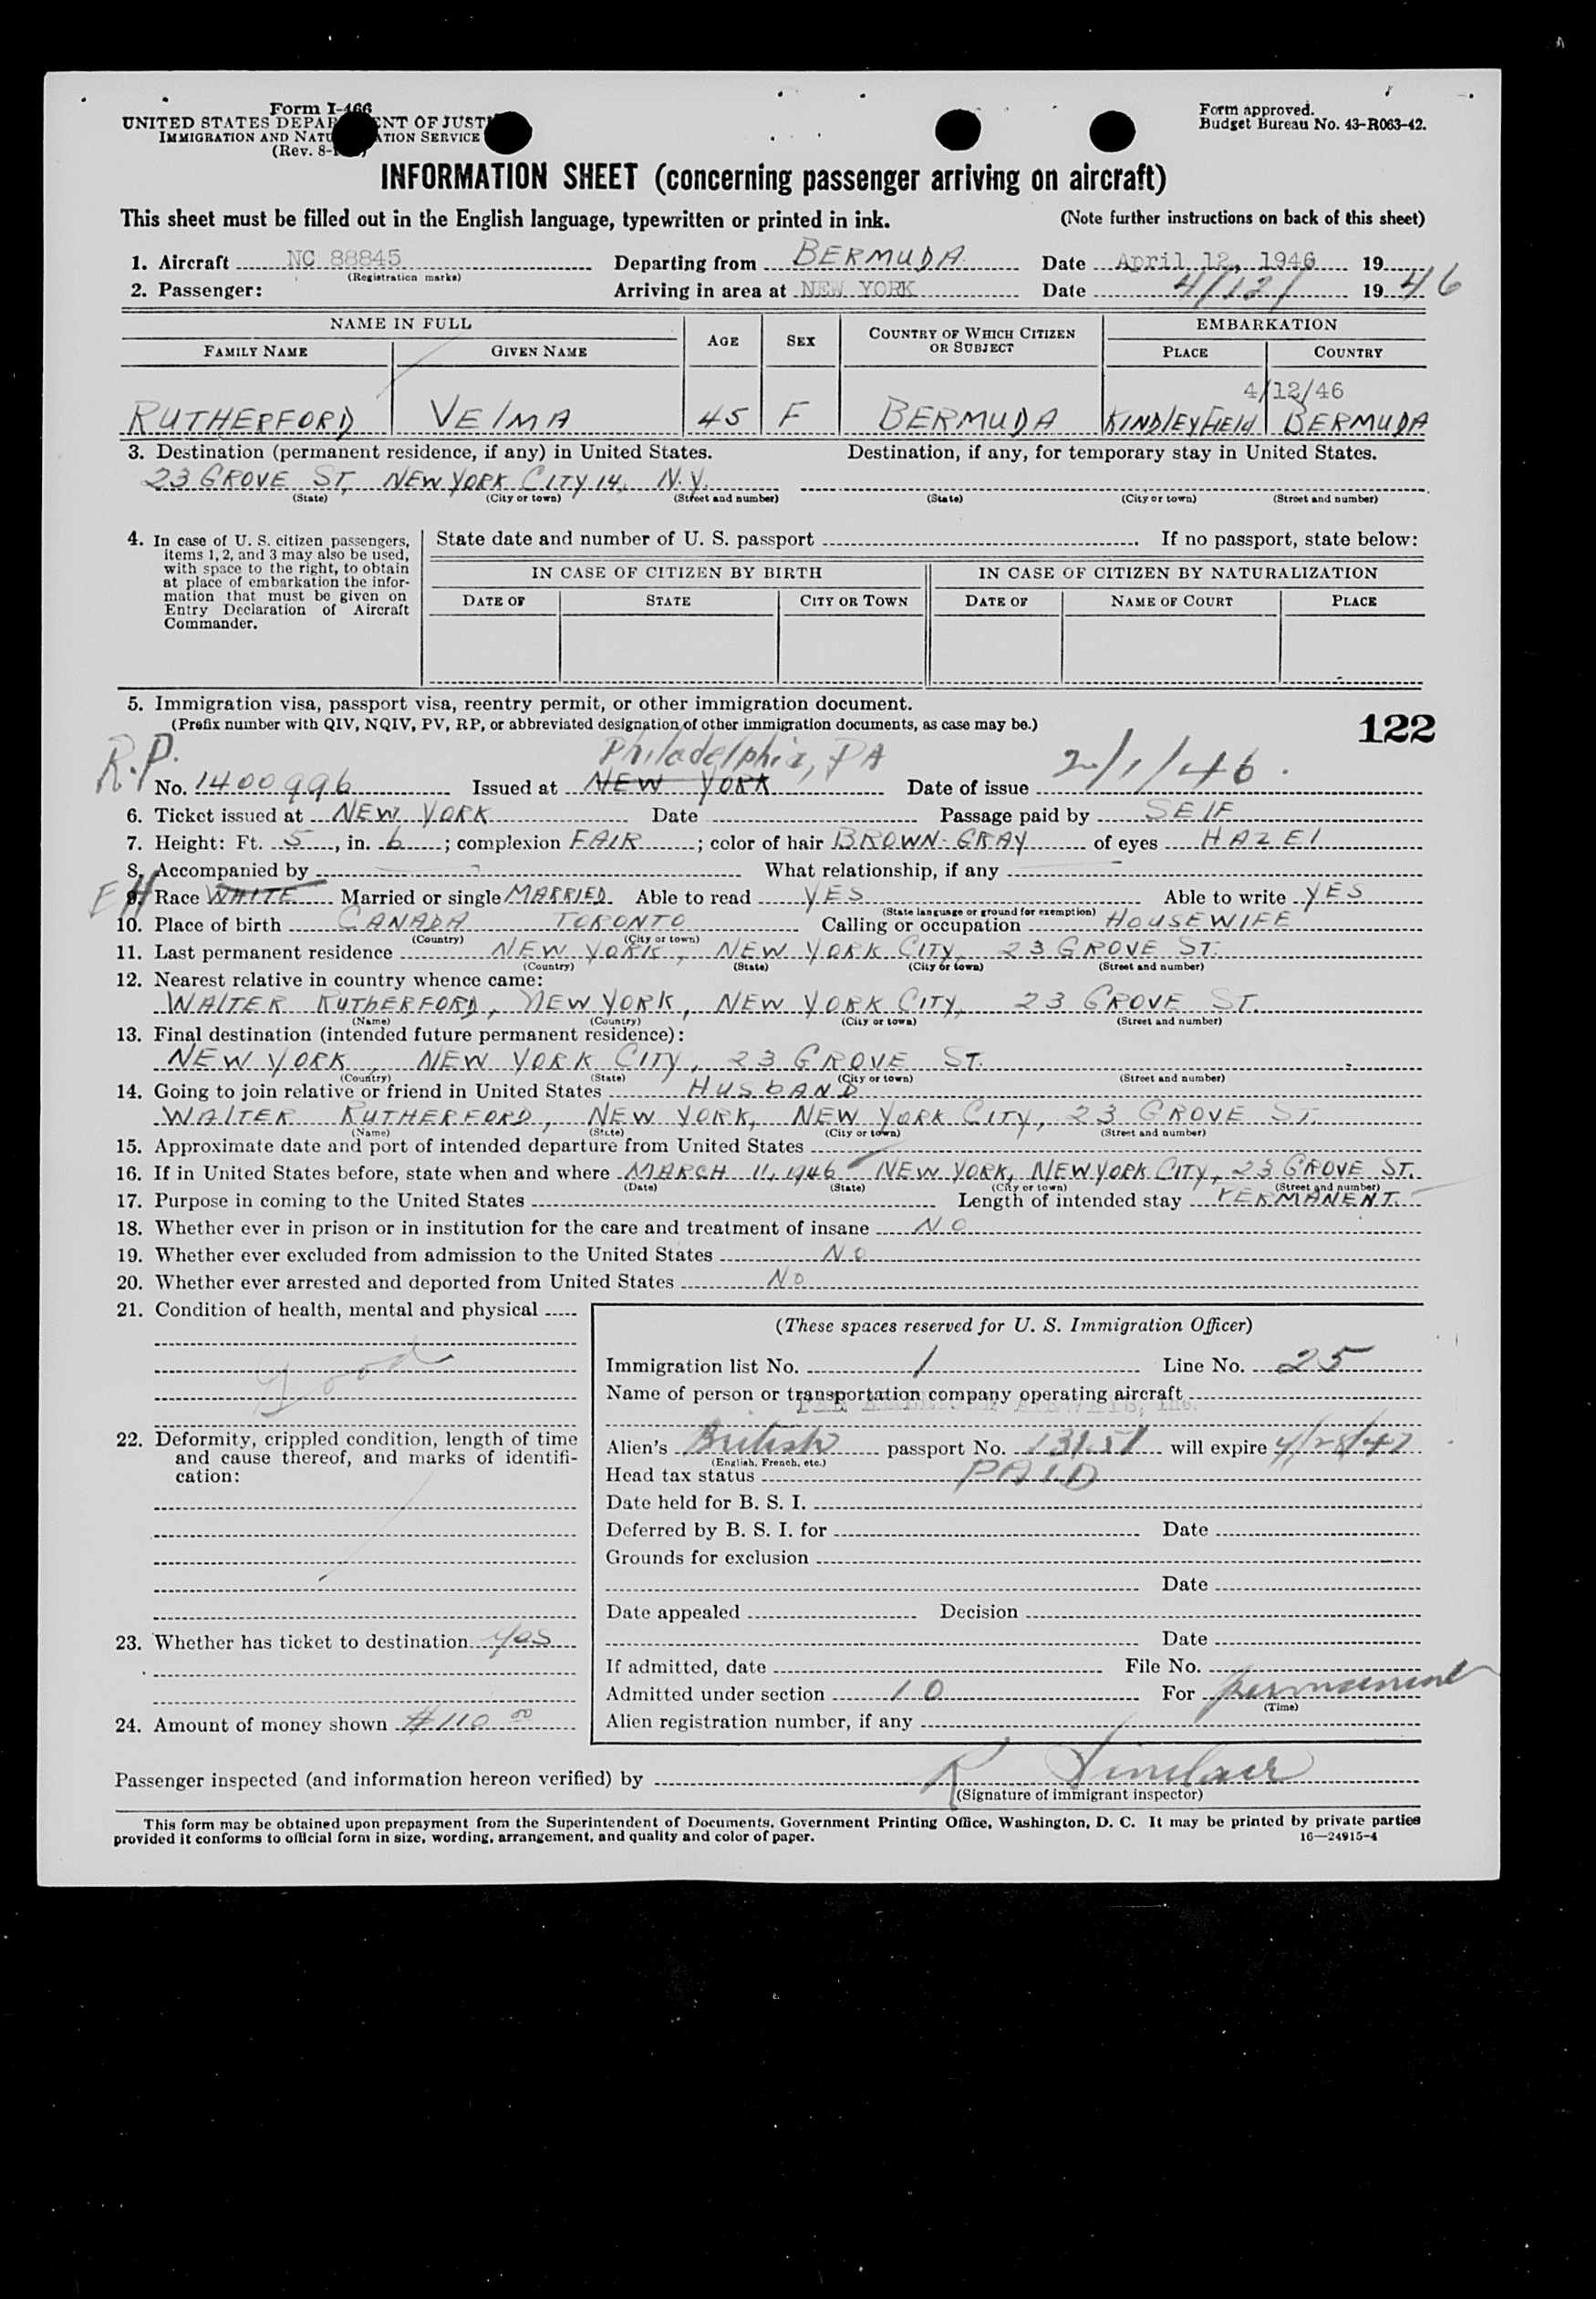 Form I-466
UNITED STATES DEPAR ENT OF JUST
IMMIGRATION AND NATU ATION SERVICE
(Rev. 8-
Form approved.
Budget Bureau No. 43-R063-42.
INFORMATION SHEET (concerning passenger arriving on aircraft)
This sheet must be filled out in the English language, typewritten or printed in ink. (Note further instructions on back of this sheet)
1. Aircraft NC 88845 Departing from BERMUDA Date April 12, 1946 19
(Registration marks)
2. Passenger: Arriving in area at NEW YORK Date 4/12/ 1946
NAME IN FULL AGE SEX COUNTRY OF WHICH CITIZEN OR SUBJECT EMBARKATION
FAMILY NAME GIVEN NAME PLACE COUNTRY
4/12/46
RUTHERFORD VElMA 45 F BERMUDA KINDlEY FIElD BERMUDA
3. Destination (permanent residence, if any) in United States. Destination, if any, for temporary stay in United States.
23 GROVE ST, NEW YORK CITY 14, N.Y.
(State) (City or town) (Street and number) (State) (City or town) (Street and number)
4. In case of U. S. citizen passengers, items 1, 2, and 3 may also be used, with space to the right, to obtain at place of embarkation the information that must be given on Entry Declaration of Aircraft Commander.
State date and number of U. S. passport If no passport, state below:
IN CASE OF CITIZEN BY BIRTH IN CASE OF CITIZEN BY NATURALIZATION
DATE OF STATE CITY OR TOWN DATE OF NAME OF COURT PLACE
5. Immigration visa, passport visa, reentry permit, or other immigration document.
(Prefix number with QIV, NQIV, PV, RP, or abbreviated designation of other immigration documents, as case may be.) 122
R.P. Philadelphia, PA 2/1/46.
No. 1400996 Issued at NEW YORK Date of issue
6. Ticket issued at NEW YORK Date Passage paid by SElF
7. Height: Ft. 5, in. 6; complexion FAIR; color of hair BROWN-GRAY of eyes HAZEl
8. Accompanied by What relationship, if any
EH
9. Race WHITE Married or single MARRIED Able to read YES Able to write YES
(State language or ground for exemption)
10. Place of birth CANADA TORONTO Calling or occupation HOUSEWIFE
(Country) (City or town)
11. Last permanent residence NEW YORK, NEW YORK CITY, 23 GROVE ST.
(Country) (State) (City or town) (Street and number)
12. Nearest relative in country whence came:
WAlTER RUTHERFORD, NEW YORK, NEW YORK CITY, 23 GROVE ST.
(Name) (Country) (City or town) (Street and number)
13. Final destination (intended future permanent residence):
NEW YORK, NEW YORK CITY, 23 GROVE ST.
(Country) (State) (City or town) (Street and number)
14. Going to join relative or friend in United States HUSbAND
WAlTER RUTHERFORD, NEW YORK, NEW YORK CITY, 23 GROVE ST.
(Name) (State) (City or town) (Street and number)
15. Approximate date and port of intended departure from United States
16. If in United States before, state when and where MARCH 11, 1946 NEW YORK, NEW YORK CITY, 23 GROVE ST.
(Date) (State) (City or town) (Street and number)
17. Purpose in coming to the United States Length of intended stay PERMANENT.
18. Whether ever in prison or in institution for the care and treatment of insane NO
19. Whether ever excluded from admission to the United States No
20. Whether ever arrested and deported from United States No
21. Condition of health, mental and physical
Good
22. Deformity, crippled condition, length of time and cause thereof, and marks of identification:
23. Whether has ticket to destination yes
24. Amount of money shown $110 00
(These spaces reserved for U. S. Immigration Officer)
Immigration list No. 1 Line No. 25
Name of person or transportation company operating aircraft
PAN AMERICAN AIRWAYS, INC.
Alien's British passport No. 13151 will expire 4/28/47
(English, French, etc.)
Head tax status PAID
Date held for B. S. I.
Deferred by B. S. I. for Date
Grounds for exclusion
Date
Date appealed Decision
Date
If admitted, date File No.
Admitted under section 10 For permanent
(Time)
Alien registration number, if any
Passenger inspected (and information hereon verified) by R Sinclair
(Signature of immigrant inspector)
This form may be obtained upon prepayment from the Superintendent of Documents, Government Printing Office, Washington, D. C. It may be printed by private parties
provided it conforms to official form in size, wording, arrangement, and quality and color of paper. 16—24915-4